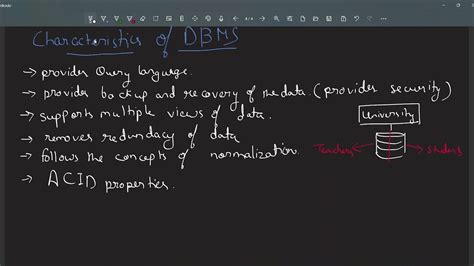 Characteristics of DBMS
→ provides Query language.
→ provides backup and recovery of the data. (provides security)
→ supports multiple views of data.
→ removes redundacy of data
→ follows the concepts of normalization.
→ ACID properties.
University
Teachers
Students